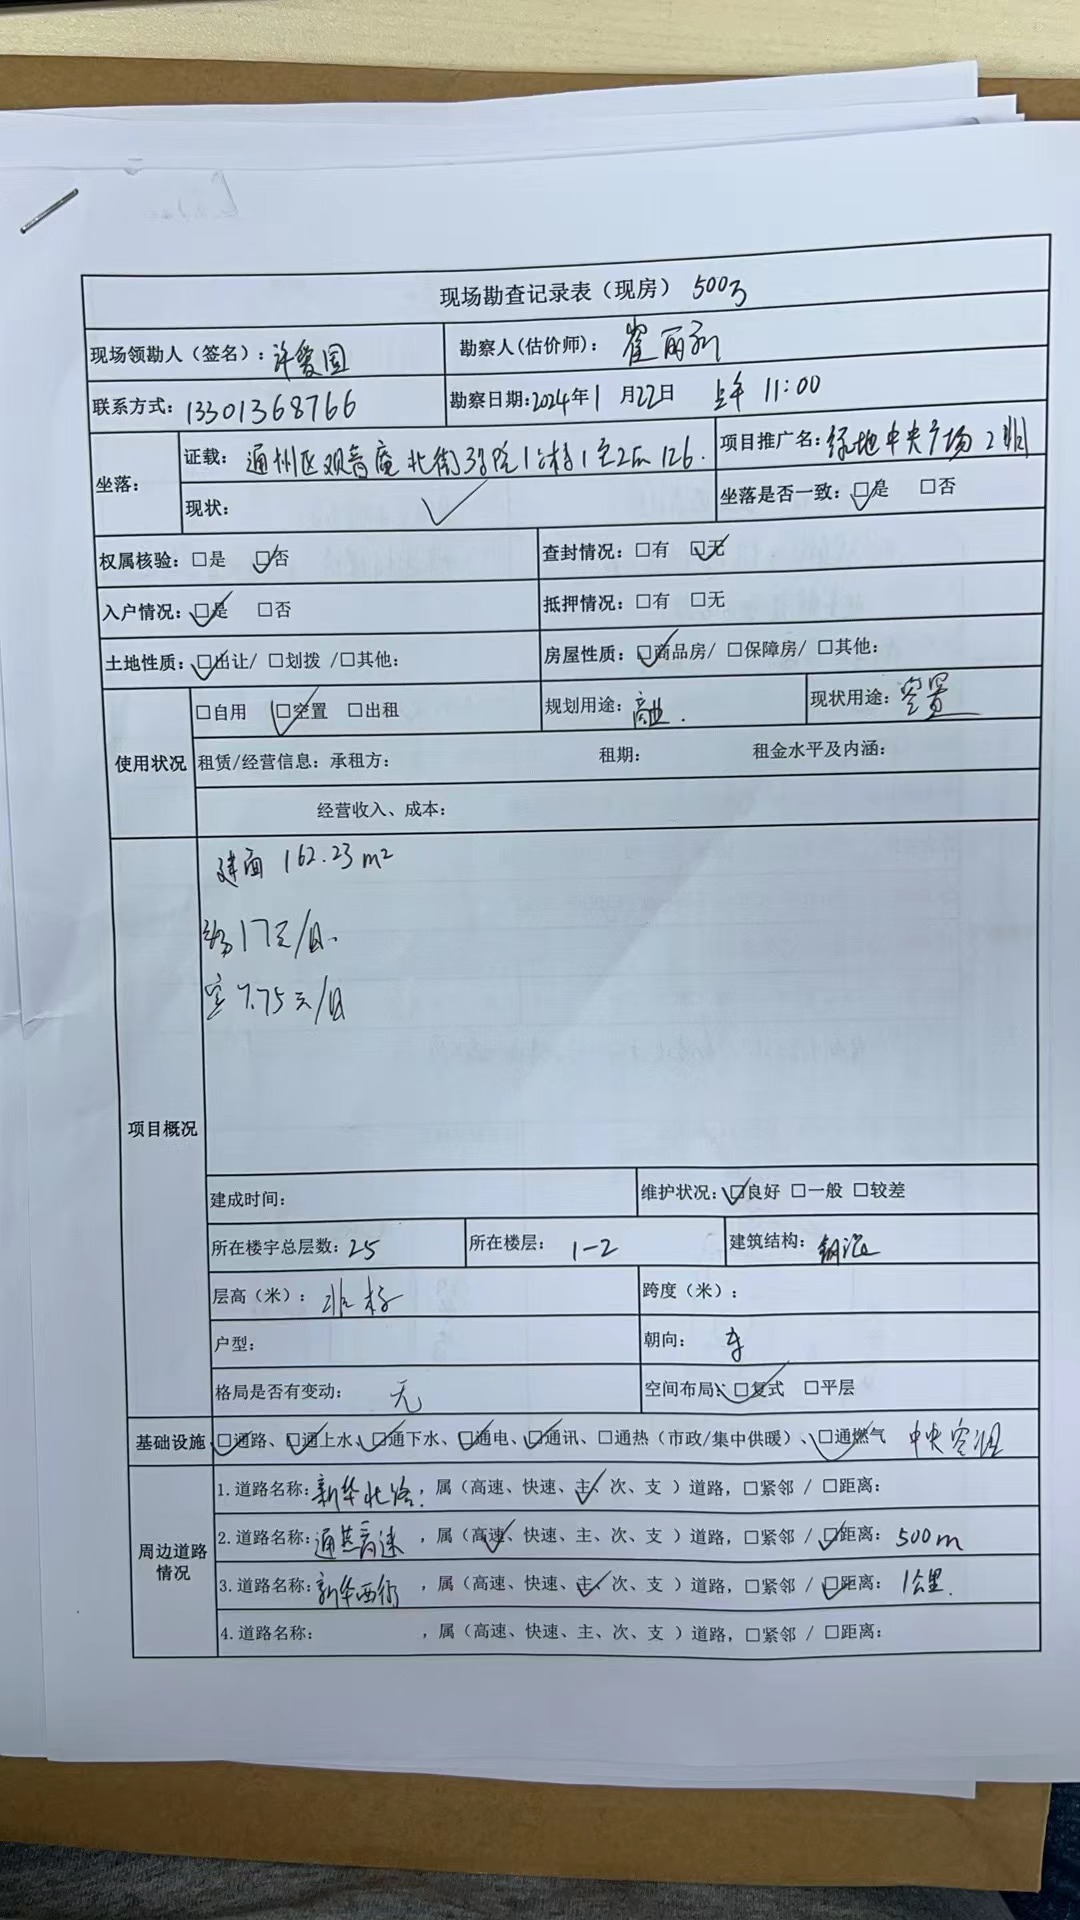 现场勘查记录表（现房） 500万
现场领勘人（签名）：许爱国 勘察人(估价师)：翟丽
联系方式：13301368766 勘察日期:2024年1月22日 上午 11:00
坐落： 证载：通州区观音庵北街3号院1号楼1至2层126. 项目推广名：绿地中央广场2期
现状：✓ 坐落是否一致：☑是 □否
权属核验：□是 ☑否 查封情况：□有 ☑无
入户情况：☑是 □否 抵押情况：□有 □无
土地性质：☑出让/ □划拨 /□其他： 房屋性质：☑商品房/ □保障房/ □其他：
使用状况 □自用 ☑空置 □出租 规划用途：商业. 现状用途：空置
租赁/经营信息：承租方： 租期： 租金水平及内涵：
经营收入、成本：
项目概况
建面 162.23m²
17元/月.
空7.75元/月
建成时间： 维护状况：☑良好 □一般 □较差
所在楼宇总层数：25 所在楼层：1-2 建筑结构：钢混
层高（米）：非标 跨度（米）：
户型： 朝向：
格局是否有变动：无 空间布局：☑复式 □平层
基础设施 ☑通路、☑通上水、☑通下水、☑通电、☑通讯、□通热（市政/集中供暖）、☑通燃气 中央空调
周边道路情况 1.道路名称：新华北路，属（高速、快速、主✓、次、支 ）道路，□紧邻 / □距离：
2.道路名称：通燕高速，属（高速✓、快速、主、次、支 ）道路，□紧邻 / ☑距离：500m
3.道路名称：新华西街，属（高速、快速、主✓、次、支 ）道路，□紧邻 / ☑距离：1公里.
4.道路名称： ，属（高速、快速、主、次、支 ）道路，□紧邻 / □距离：